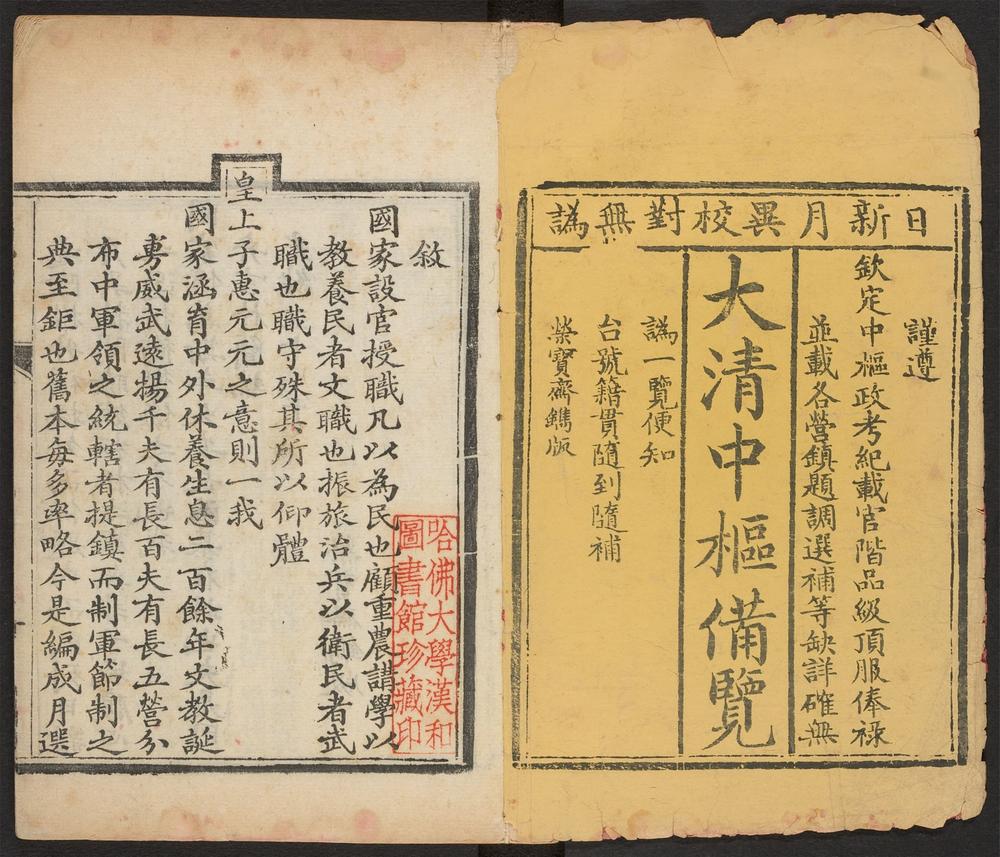 日新月異校對無譌
謹遵
欽定中樞政考紀載官階品級頂服俸祿
並載各營鎮題調選補等缺詳確無
大清中樞備覽
譌一覽便知
台號籍貫隨到隨補
榮寶齋鐫版
敘
國家設官授職凡以為民也顧重農講學以
教養民者文職也振旅治兵以衛民者武
職也職守殊其所以仰體
皇上子惠元元之意則一我
國家涵育中外休養生息二百餘年文教誕
旉威武遠揚千夫有長百夫有長五營分
布中軍領之統轄者提鎮而制軍節制之
典至鉅也舊本每多率略今是編成月選
哈佛大學漢和
圖書館珍藏印